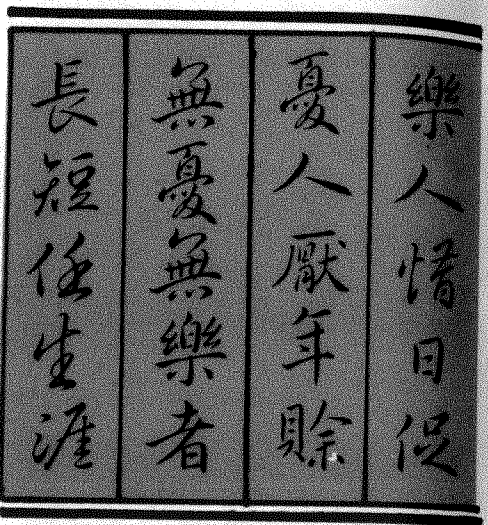 樂人惜日促
憂人厭年賒
無憂無樂者
長短任生涯